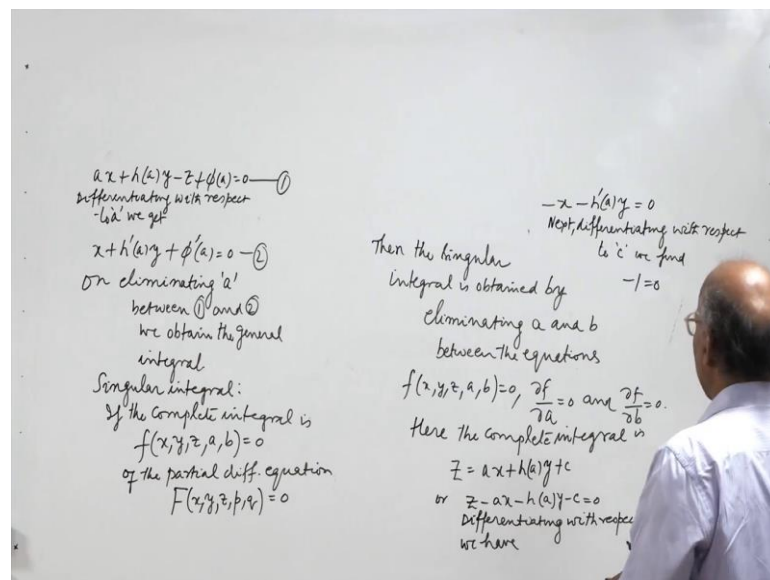 ax+h(a)y-z+φ(a)=0—①
Differentiating with respect
to 'a' we get
x+h'(a)y+φ'(a)=0-②
On eliminating 'a'
between ① and ②
we obtain the general
integral
Singular integral:
If the complete integral is
f(x,y,z,a,b)=0
of the partial diff. equation
F(x,y,z,p,q)=0
Then the singular
integral is obtained by
eliminating a and b
between the equations
f(x,y,z,a,b)=0, ∂f/∂a=0 and ∂f/∂b=0.
Here the complete integral is
z=ax+h(a)y+c
or z-ax-h(a)y-c=0
Differentiating with respec
we have
-x-h'(a)y=0
Next, differentiating with respect
to 'c' we find
-1=0